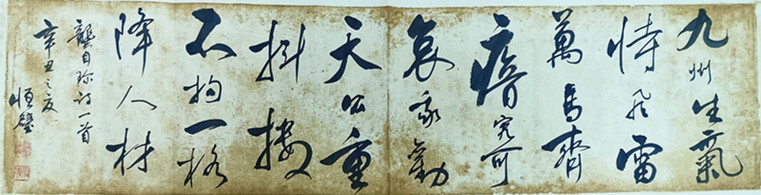 九州生氣
恃風雷
萬馬齊
瘖究可
哀我勸
天公重
抖擻
不拘一格
降人材
龔自珍詩一首
辛丑之夏
恒